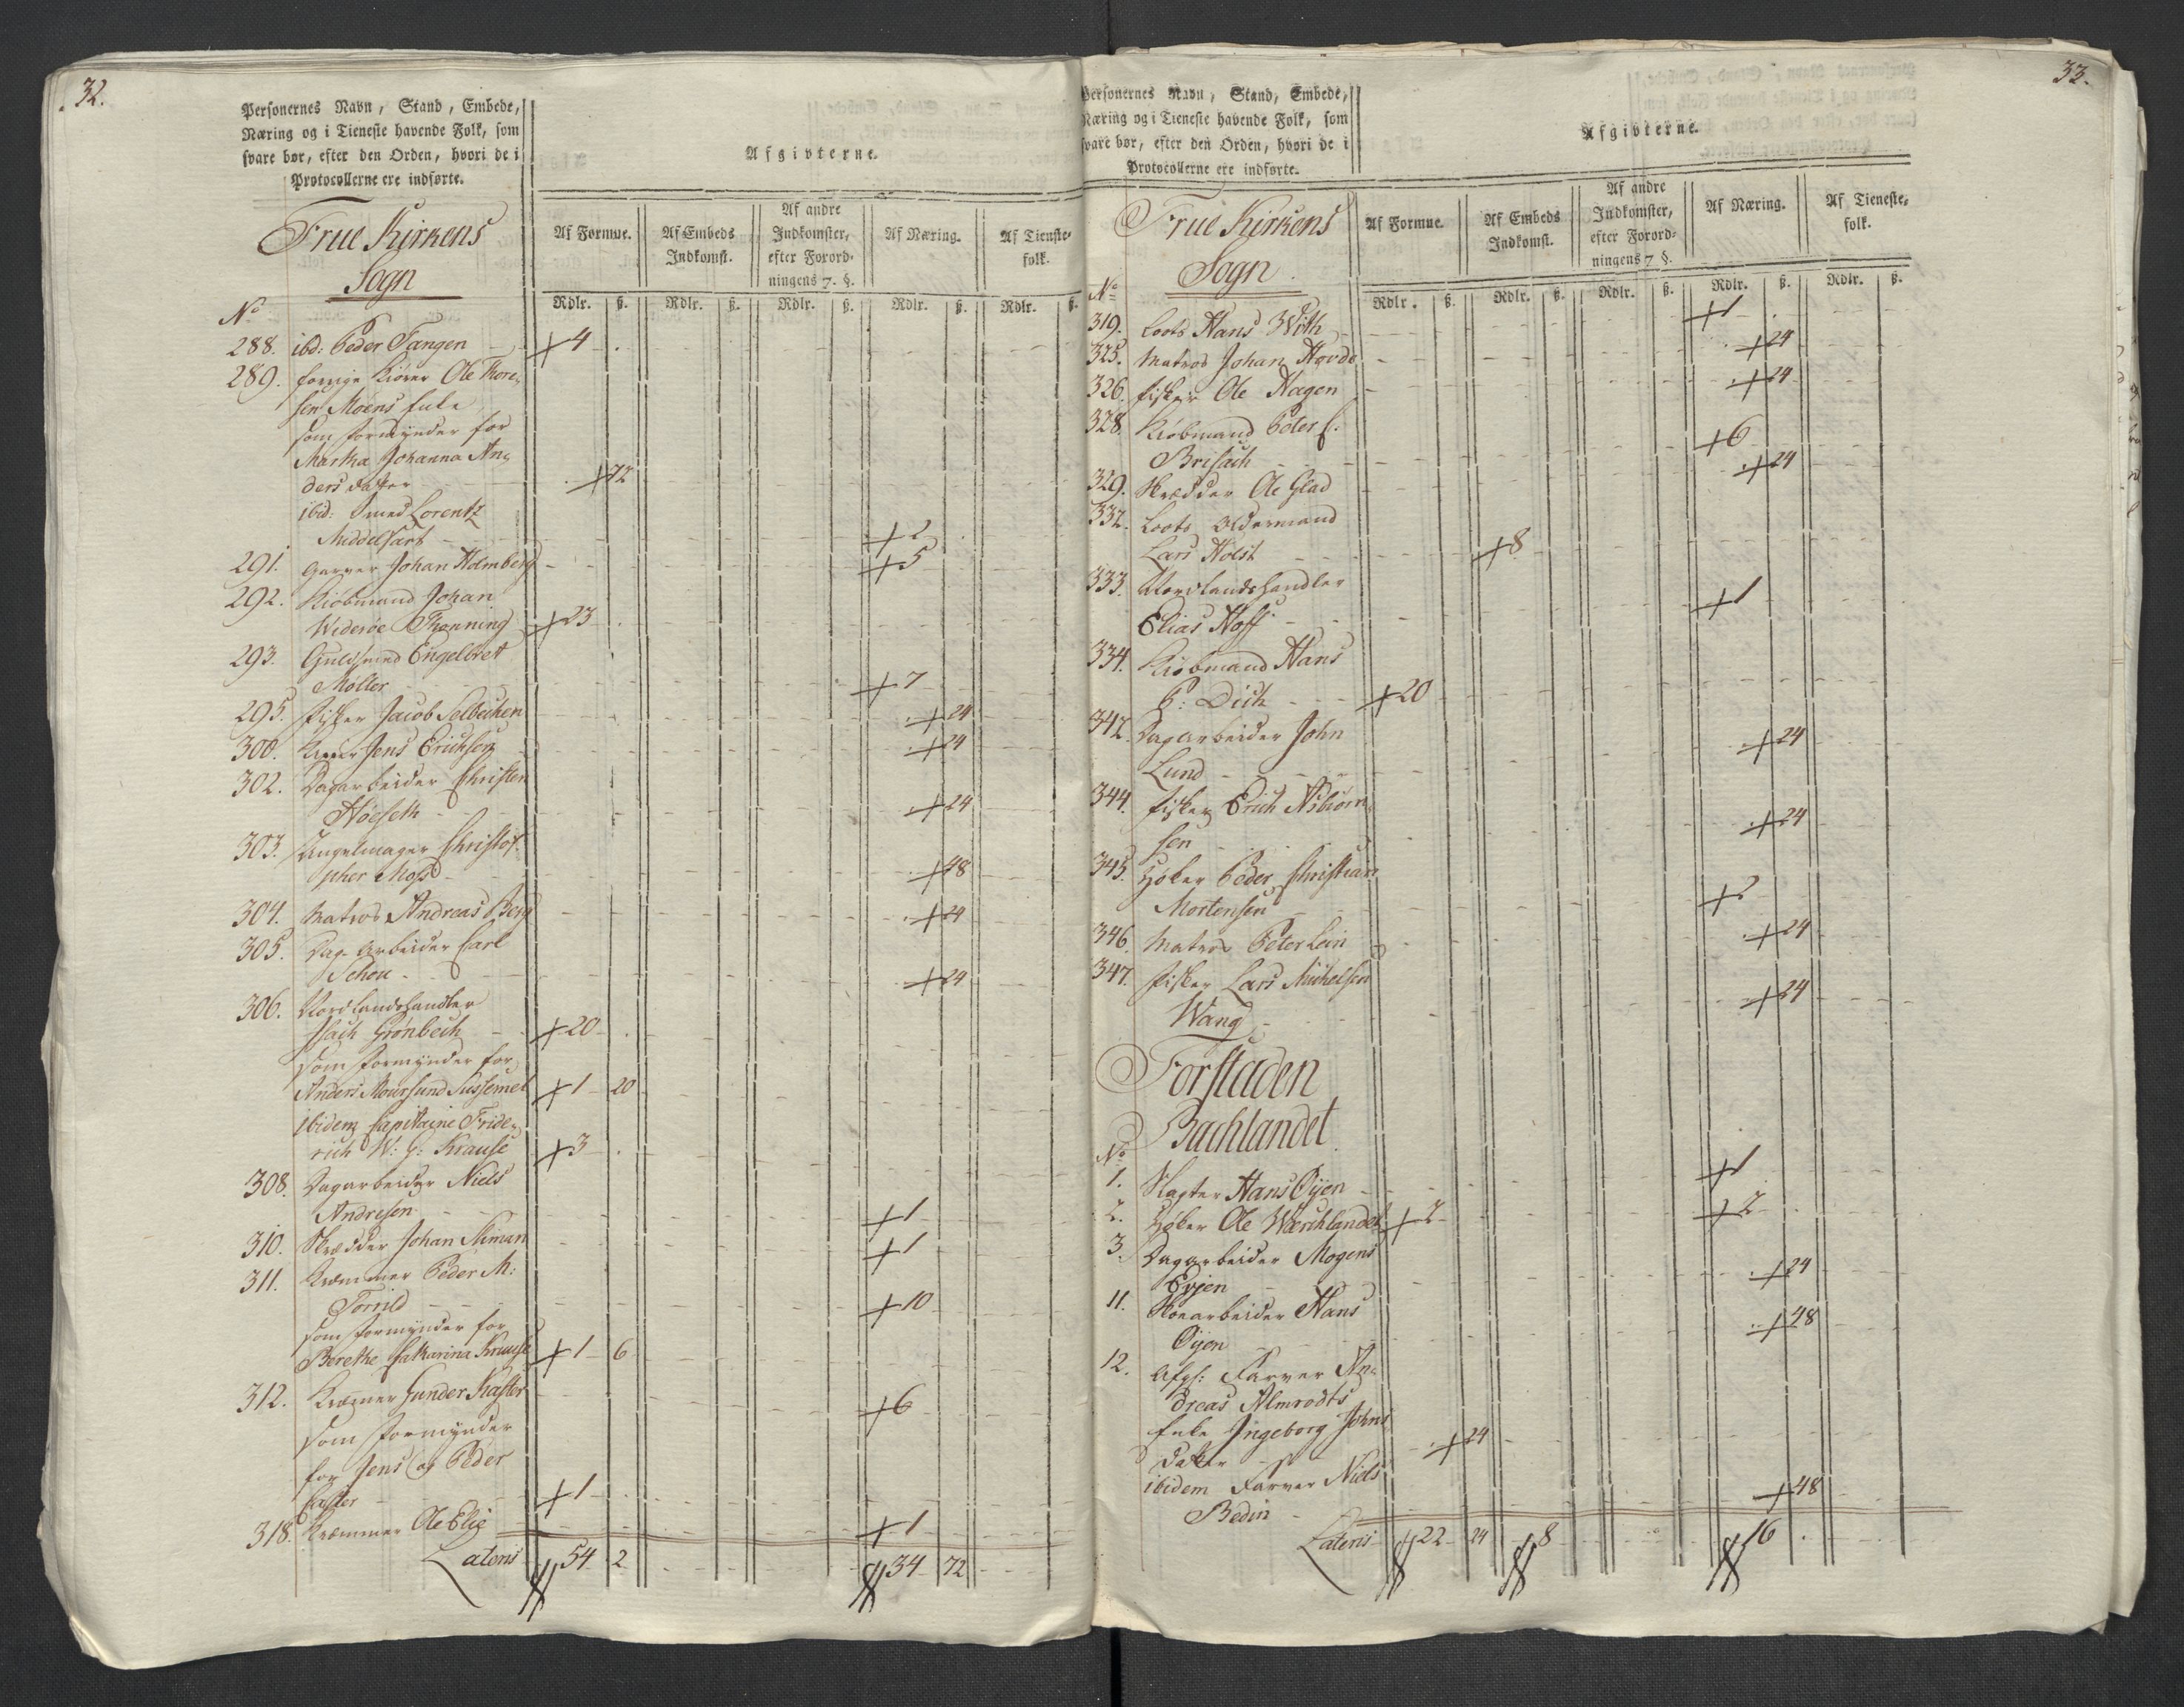 32.
Personernes Navn, Stand, Embede,
Næring og i Tieneste havende Folk, som
svare bør, efter den Orden, hvori de i
Protocollerne ere indførte.
Afgivterne.
Frue Kirkens
Sogn
Af Formue.
Af Embeds
Indkomst.
Af andre
Indkomster,
efter Forord-
ningens 7. §.
Af Næring.
Af Tieneste-
folk.
No
Rdlr. ß. Rdlr. ß. Rdlr. ß. Rdlr. ß. Rdlr. ß.
288. ibd: Peder Tangen 4
289. forrige Kiører Ole Thore-
sen Moens Enke
som Formynder for
Martha Johanna An-
ders datter 72
ibid: Smed Lorentz
Middelfart 2
291. Garver Johan Holmberg 5
292. Kiøbmand Johan
Widerøe Thonning 23
293. Guldsmed Engelbret
Møller 7
295. Fisker Jacob Selbechen 24
300. Kiører Jens Erichsen 24
302. Dagarbeider Christen
Høeseth 24
303. Angelmager Christof-
pher Moss 48
304. Matros Andreas Berg 24
305. Dag-arbeider Carl
Schou 24
306. Nordlandshandler
Isach Grønbech 20
som Formynder for
Anders Moursund Sussemel 1 20
ibidem Capitaine Fride-
rich W: G: Krause 3
308. Dagarbeider Niels
Andresen 1
310. Skrædder Johan Sliman 1
311. Kræmmer Peder M:
Torrild 10
som Formynder for
Berethe Catharina Krause 1 6
312. Kræmer Gunder Kaster
6
som Formynder
for Jens og Peder
Caster 1
318. Kræmmer Ole Elie 1
Lateris 54 2 34 72
33.
Personernes Navn, Stand, Embede,
Næring og i Tieneste havende Folk, som
svare bør, efter den Orden, hvori de i
Protocollerne ere indførte.
Afgivterne.
Frue Kirkens
Sogn.
Af Formue.
Af Embeds
Indkomst.
Af andre
Indkomster,
efter Forord-
ningens 7 §.
Af Næring.
Af Tieneste-
folk.
No
Rdlr. ß. Rdlr. ß. Rdlr. ß. Rdlr. ß. Rdlr. ß.
319. Loots Hans With 1
325. Matros Johan Hovde 24
326. Fisker Ole Hagen 24
328. Kiøbmand Peter C.
Brisach 6
329. Skrædder Ole Glad 24
332. Loots Oldermand
Lars Holst 8
333. Nordlandshandler
Elias Hoff 1
334. Kiøbmand Hans
P: Dick 20
342. Dagarbeider John
Lund 24
344. Fisker Erich Asbiørn-
sen 24
345. Høker Peder Christian
Mortensen 2
346. Matros Peter Lein 24
347. Fisker Lars Michelsen
Wang 24
Forstaden
Bachlandet
No
1. Slagter Hans Øyen 1
2. Høker Ole Wærchlandet 2 2
3. Dagarbeider Mogens
Evjen 24
11. Skoearbeider Hans
Øyen 48
12. Afg: Farver An-
dreas Almrodts
Enke Ingeborg Johns
datter 24
ibidem Farver Niels
Bedin 48
Lateris 22 24 8 16